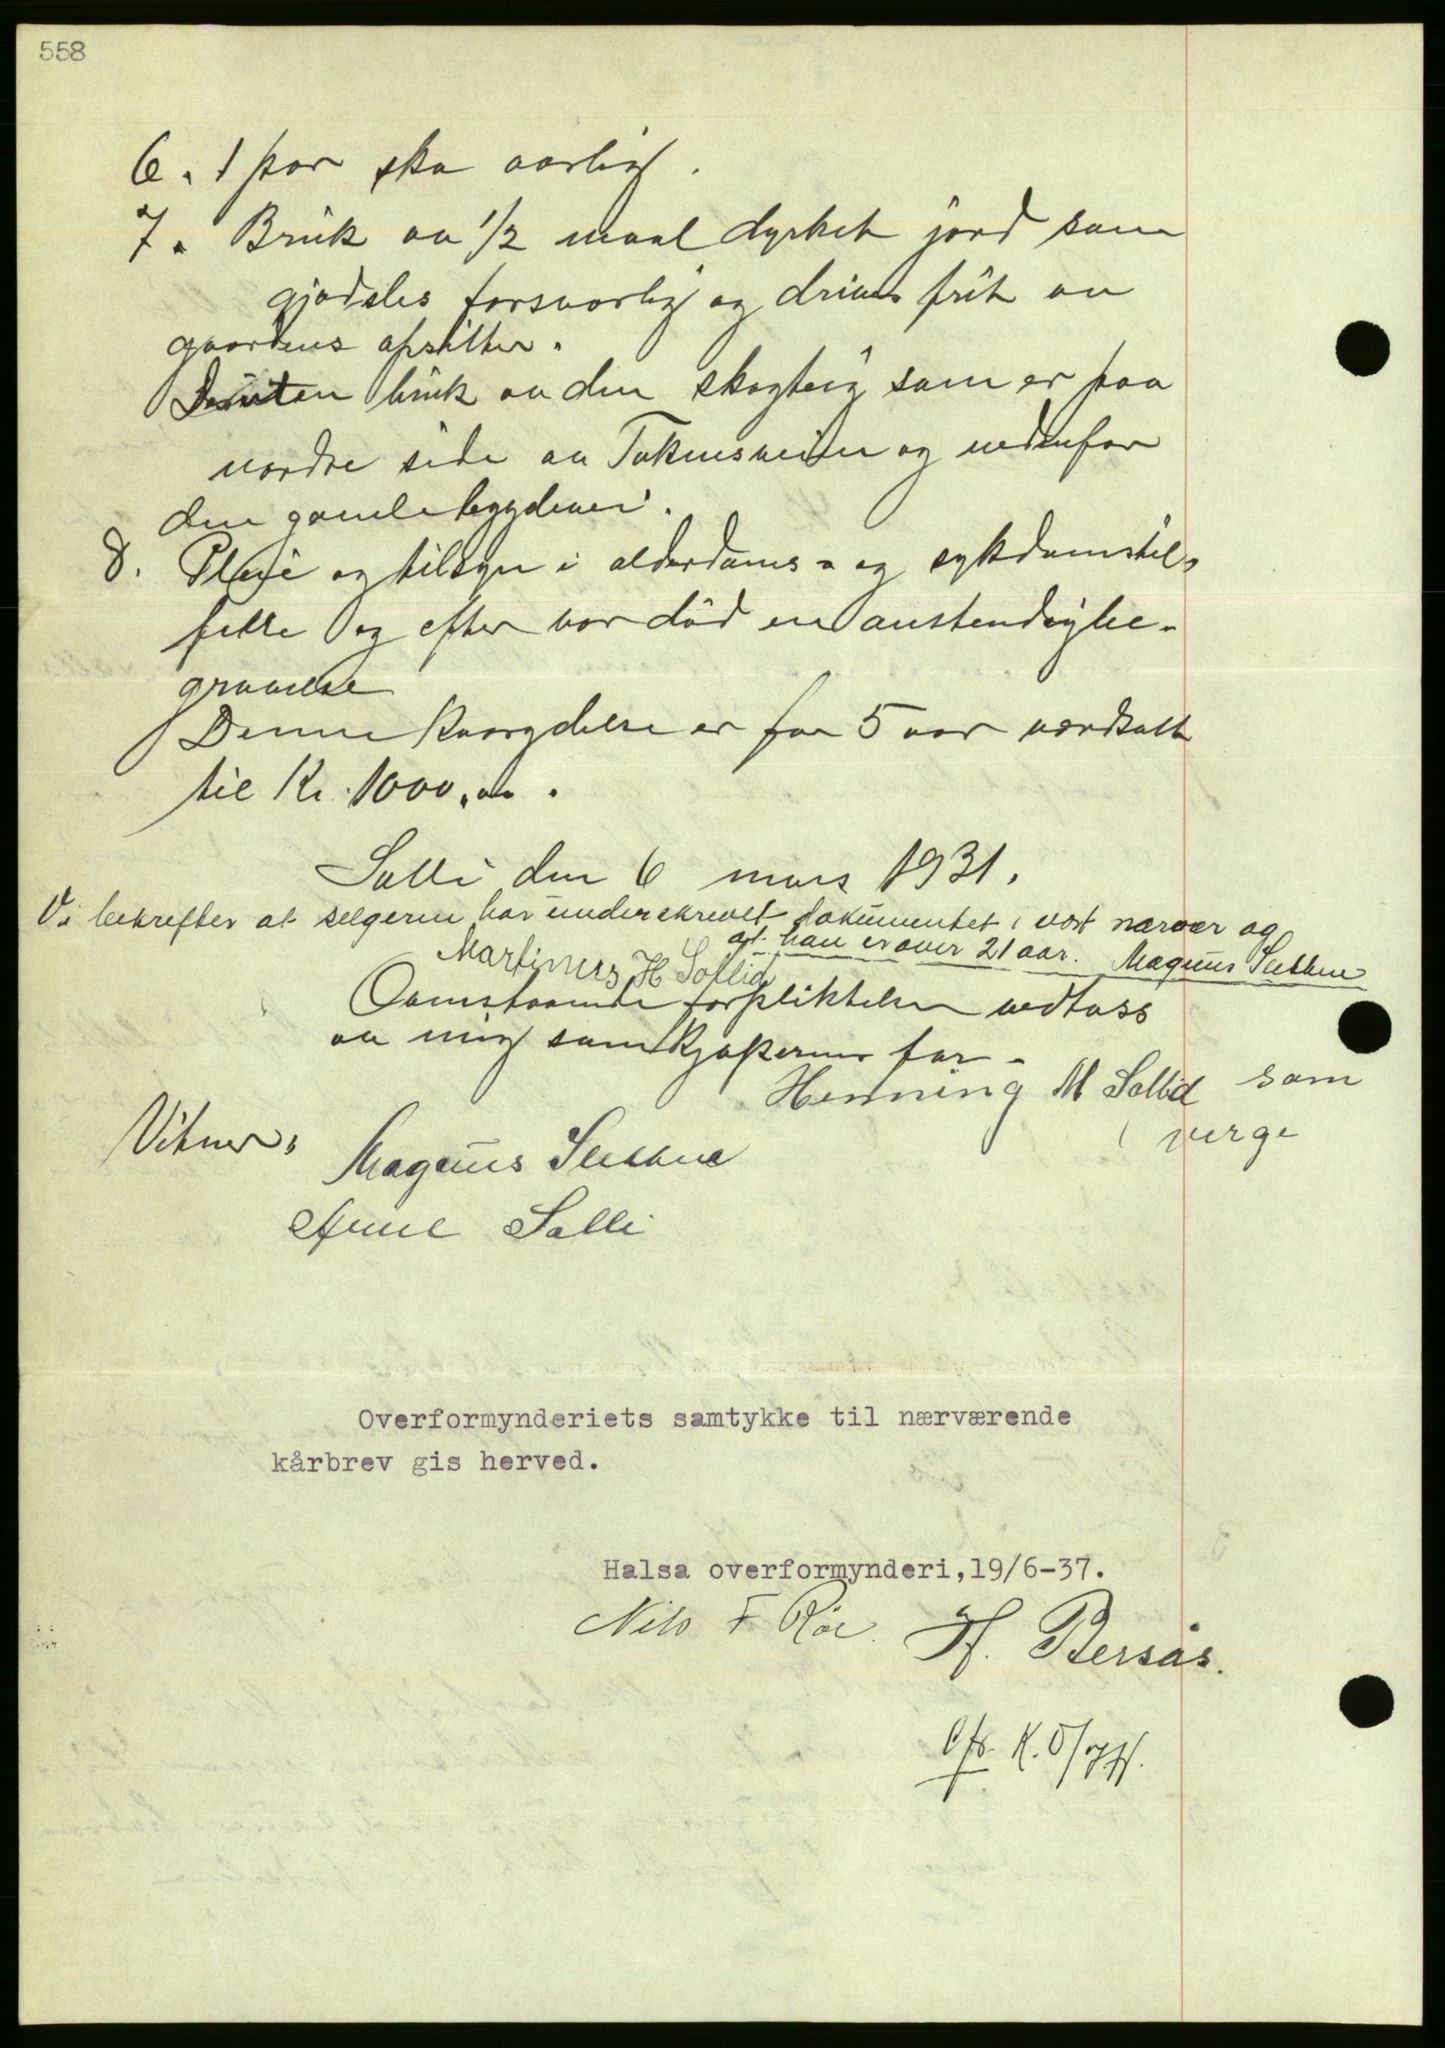 558
6. 1 par sko aarlig.
7. Bruk av 1/2 maal dyrket jord som
gjødsles forsvarlig og drives frit av
gaardens opsitter.
Desuten bruk av den skogteig som er paa
nordre side av og nedenfor
den gamle bygdevei.
8. Pleie og tilsyn i alderdoms- og sykdomstil-
felle og efter vor død en anstendig be-
gravelse
Denne kaarydelse er for 5 aar værdsatt
til Kr. 1000,00.
Solli den 6 mars 1931.
Vi bekrefter at selgeren har underskrevet dokumentet i vort nærvær og
at han er over 21 aar. Magnus
Martinus H Sollid
Ovenstaaende forpliktelser vedtass
av mig som kjøperens far -
Henning M Sollid som
verge
Vitner:
Magnus
Arne Solli
Overformynderiets samtykke til nærværende
kårbrev gis herved.
Halsa overformynderi, 19/6-37.
Nils F Röe. H. Bersås.
Cfr. K.